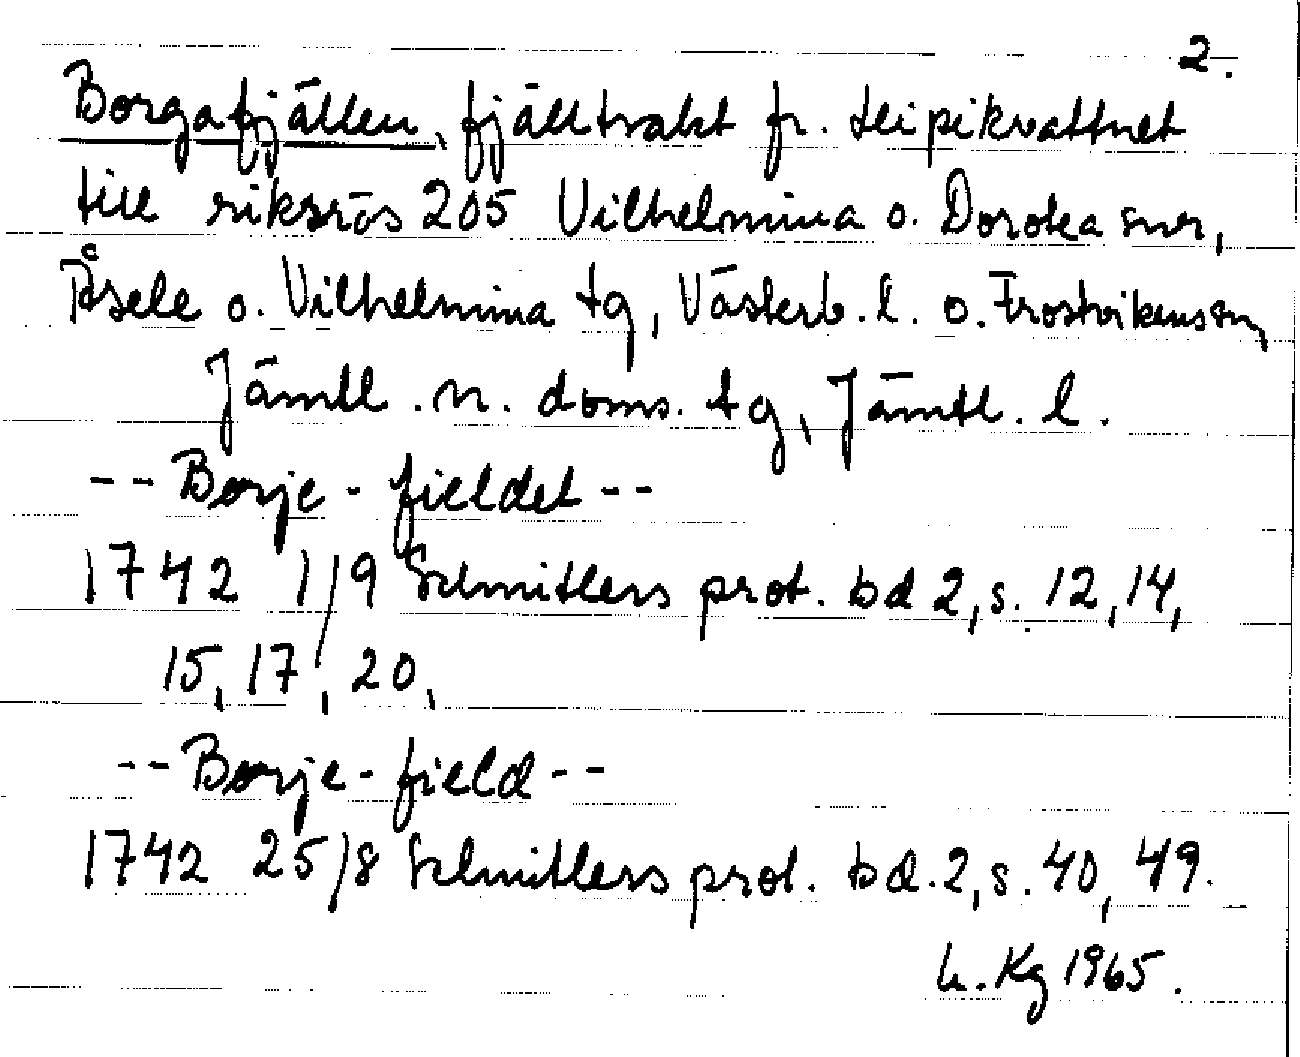 2.
Borgafjällen, fjälltrakt fr. Leipikvattnet
till riksrös 205 Vilhelmina o. Dorotea snr,
Åsele o. Vilhelmina tg, Västerb. l. o. Frostvikens sn,
Jämtl. n. doms. tg, Jämtl. l.
-- Børje - fieldet --
1742 1/9 Schnitlers prot. bd 2, s. 12, 14,
15, 17, 20,
-- Børje - field --
1742 25/8 Schnitlers prot. bd. 2, s. 40, 49.
h. Kg 1965.